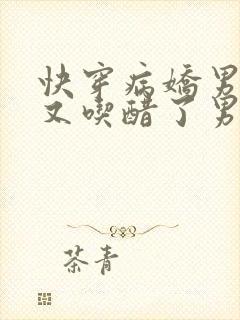 快穿病嬌男
又喫醋了男
茶青